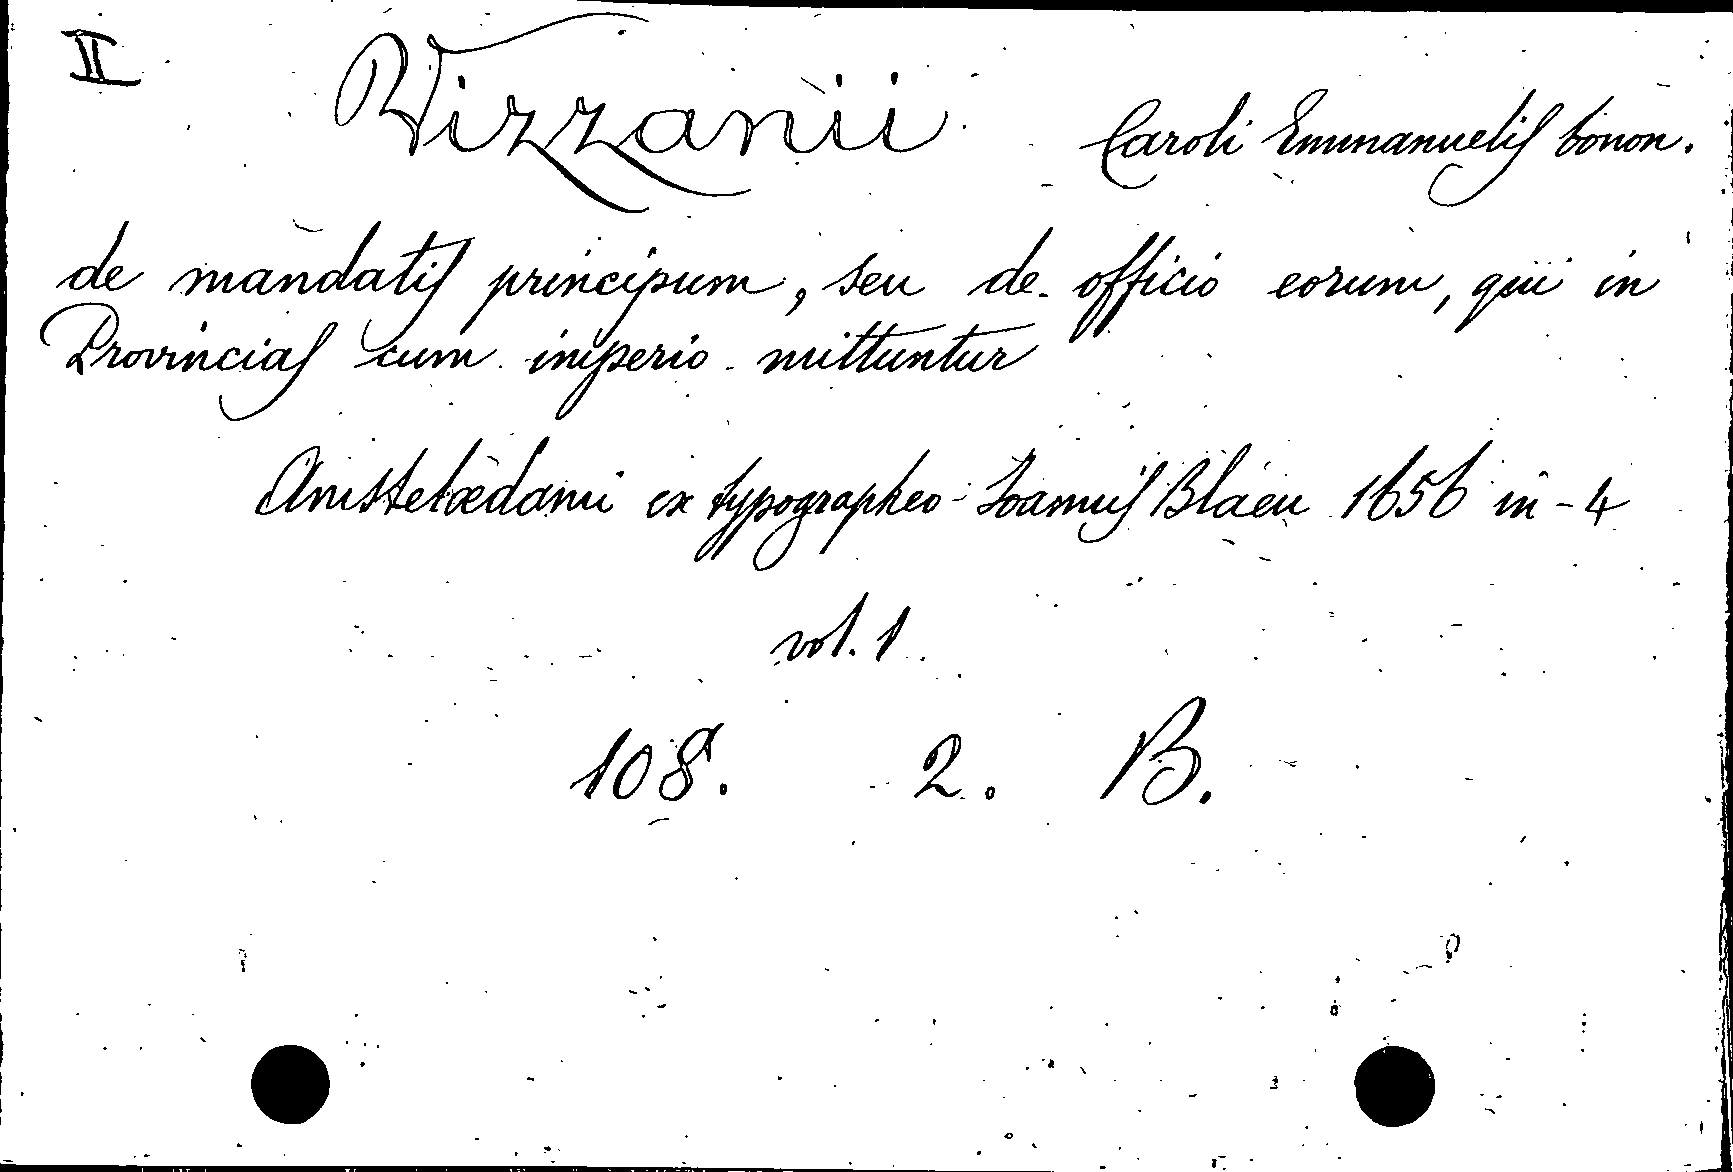 II
Vizzanii Caroli Emmanuelis bonon.
de mandatis principum, seu de officio eorum, qui in
Provincias cum imperio mittuntur
Amstelædami ex typographeo Ioannis Blaeu 1656 in-4
vol. 1
108. 2. B.